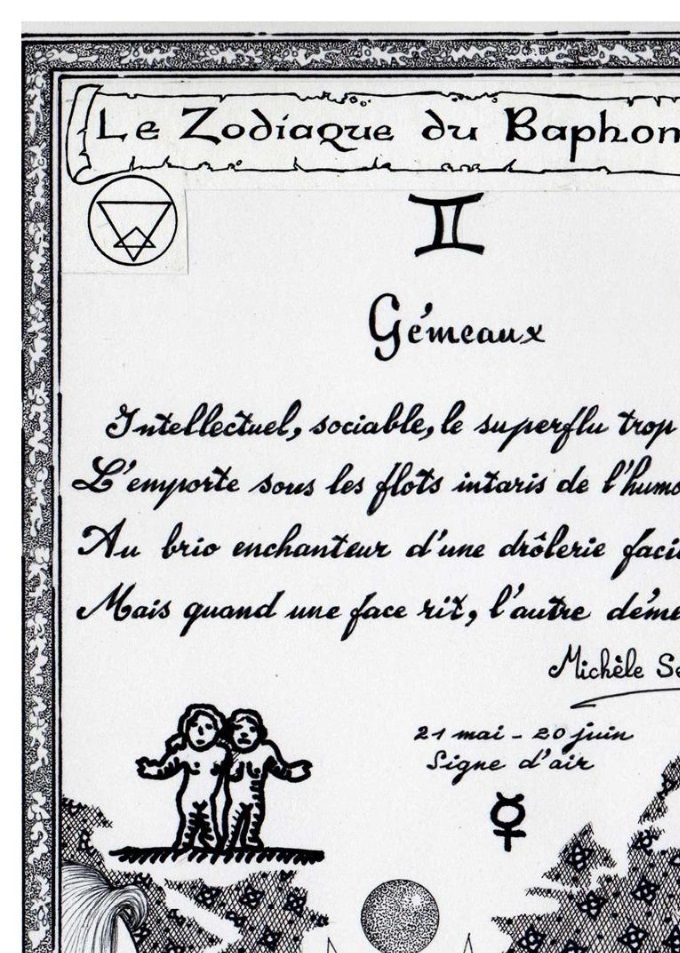 Le Zodiaque du Baphom
Gémeaux
Intellectuel, sociable, le superflu trop
L'emporte sous les flots intaris de l'humo
Au brio enchanteur d'une drôlerie faci
Mais quand une face rit, l'autre déme
Michèle Se
21 mai - 20 juin
Signe d'air